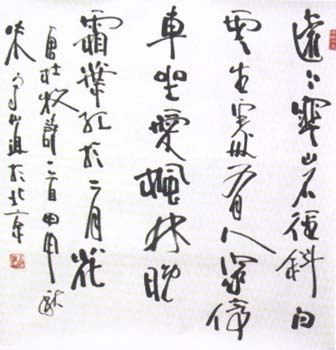 遠上寒山石径斜白
雲生處有人家停
車坐愛楓林晚
霜葉紅於二月花
杜牧詩一首
於北京